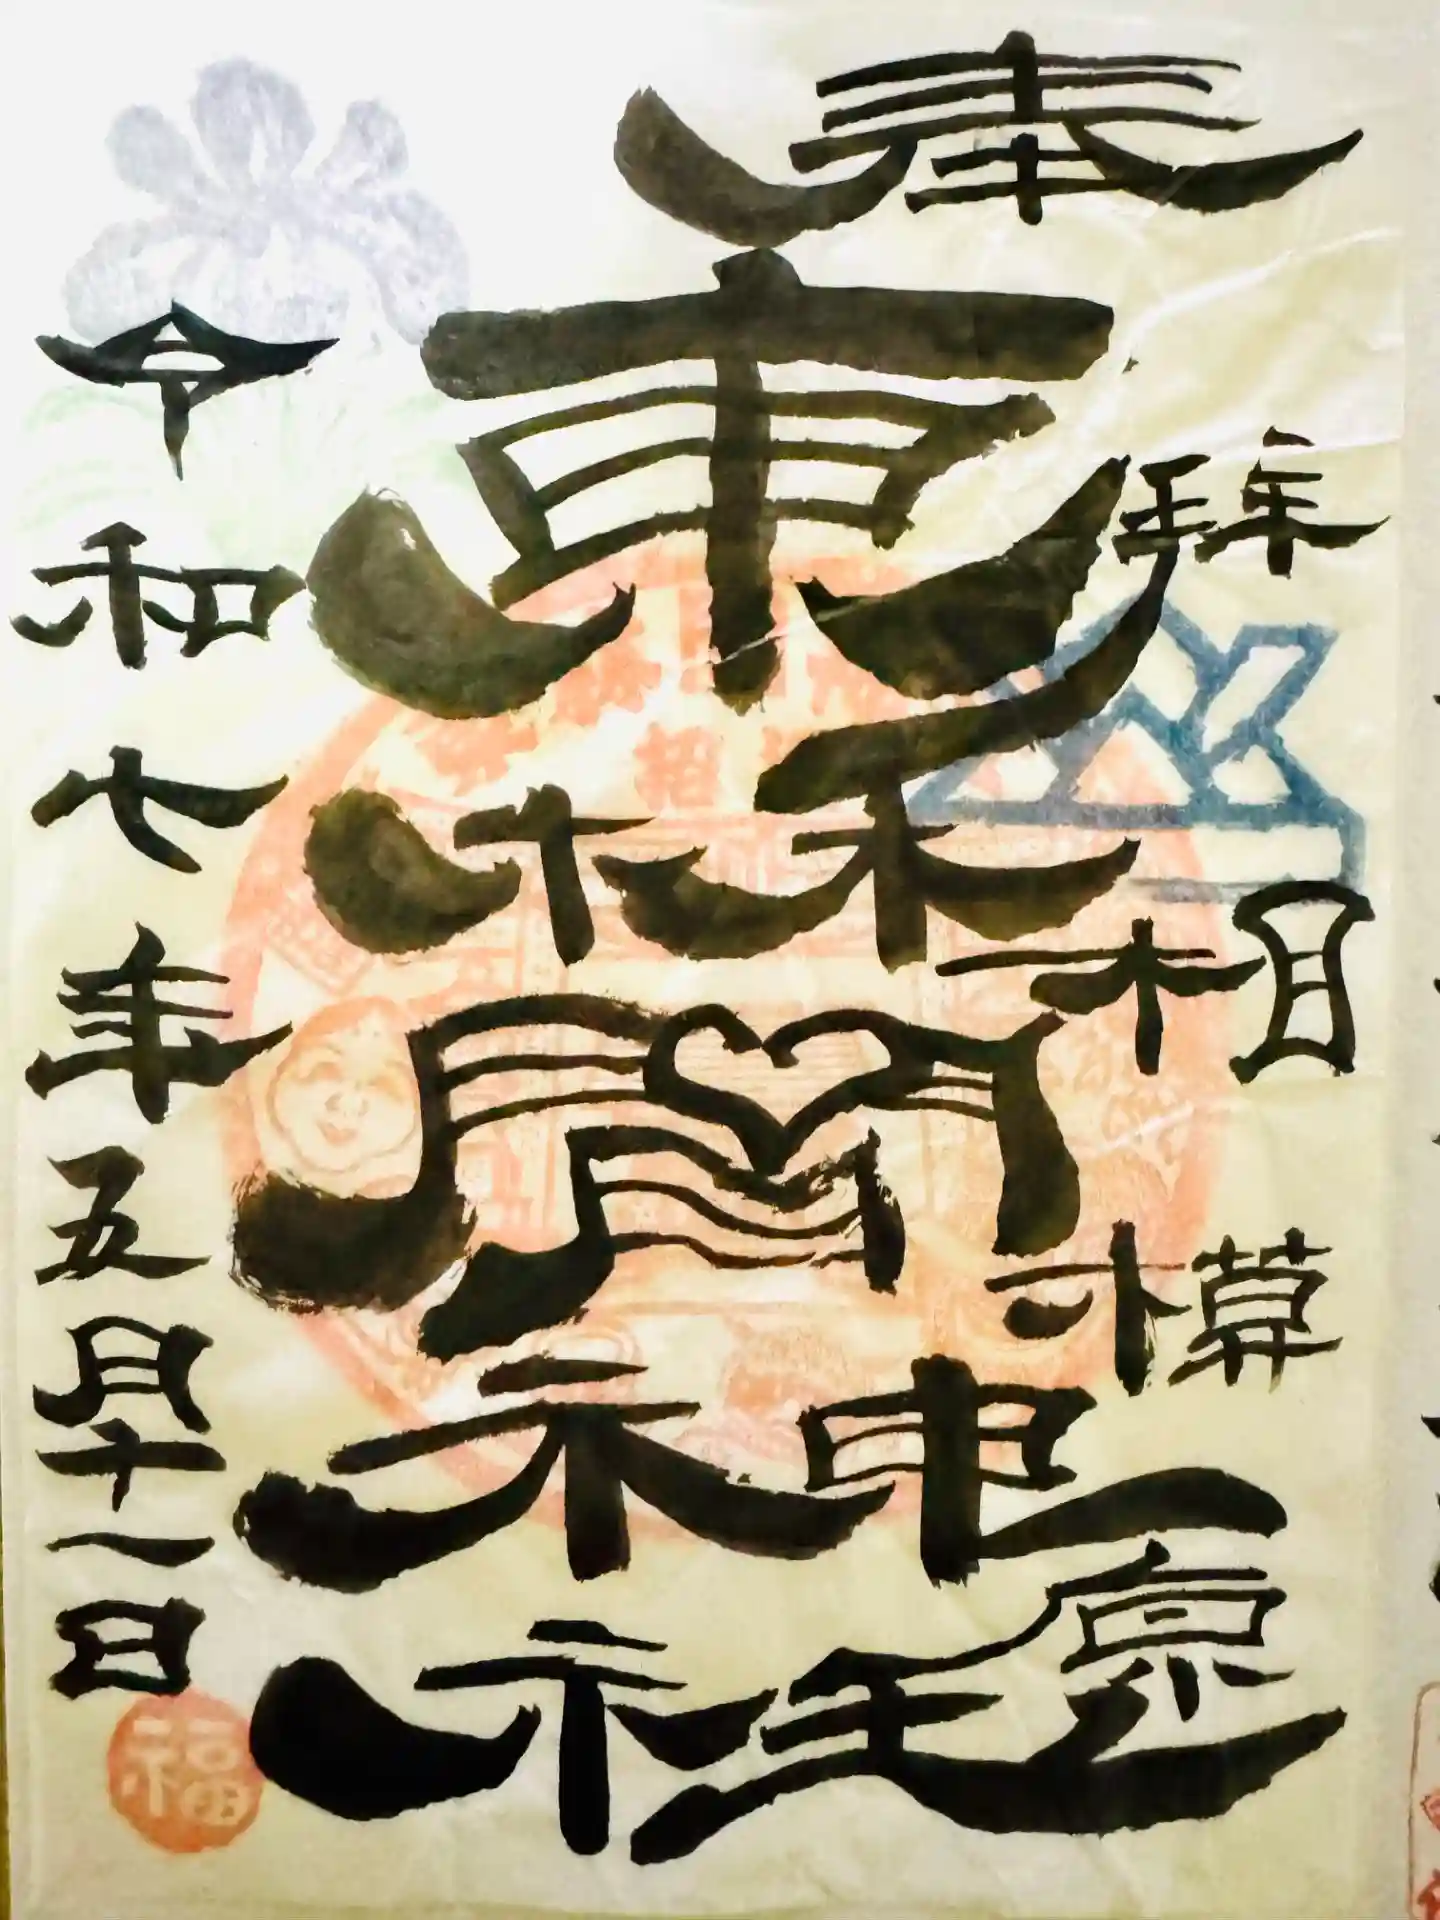 奉拝
相模原
東林間神社
令和七年五月十一日
福